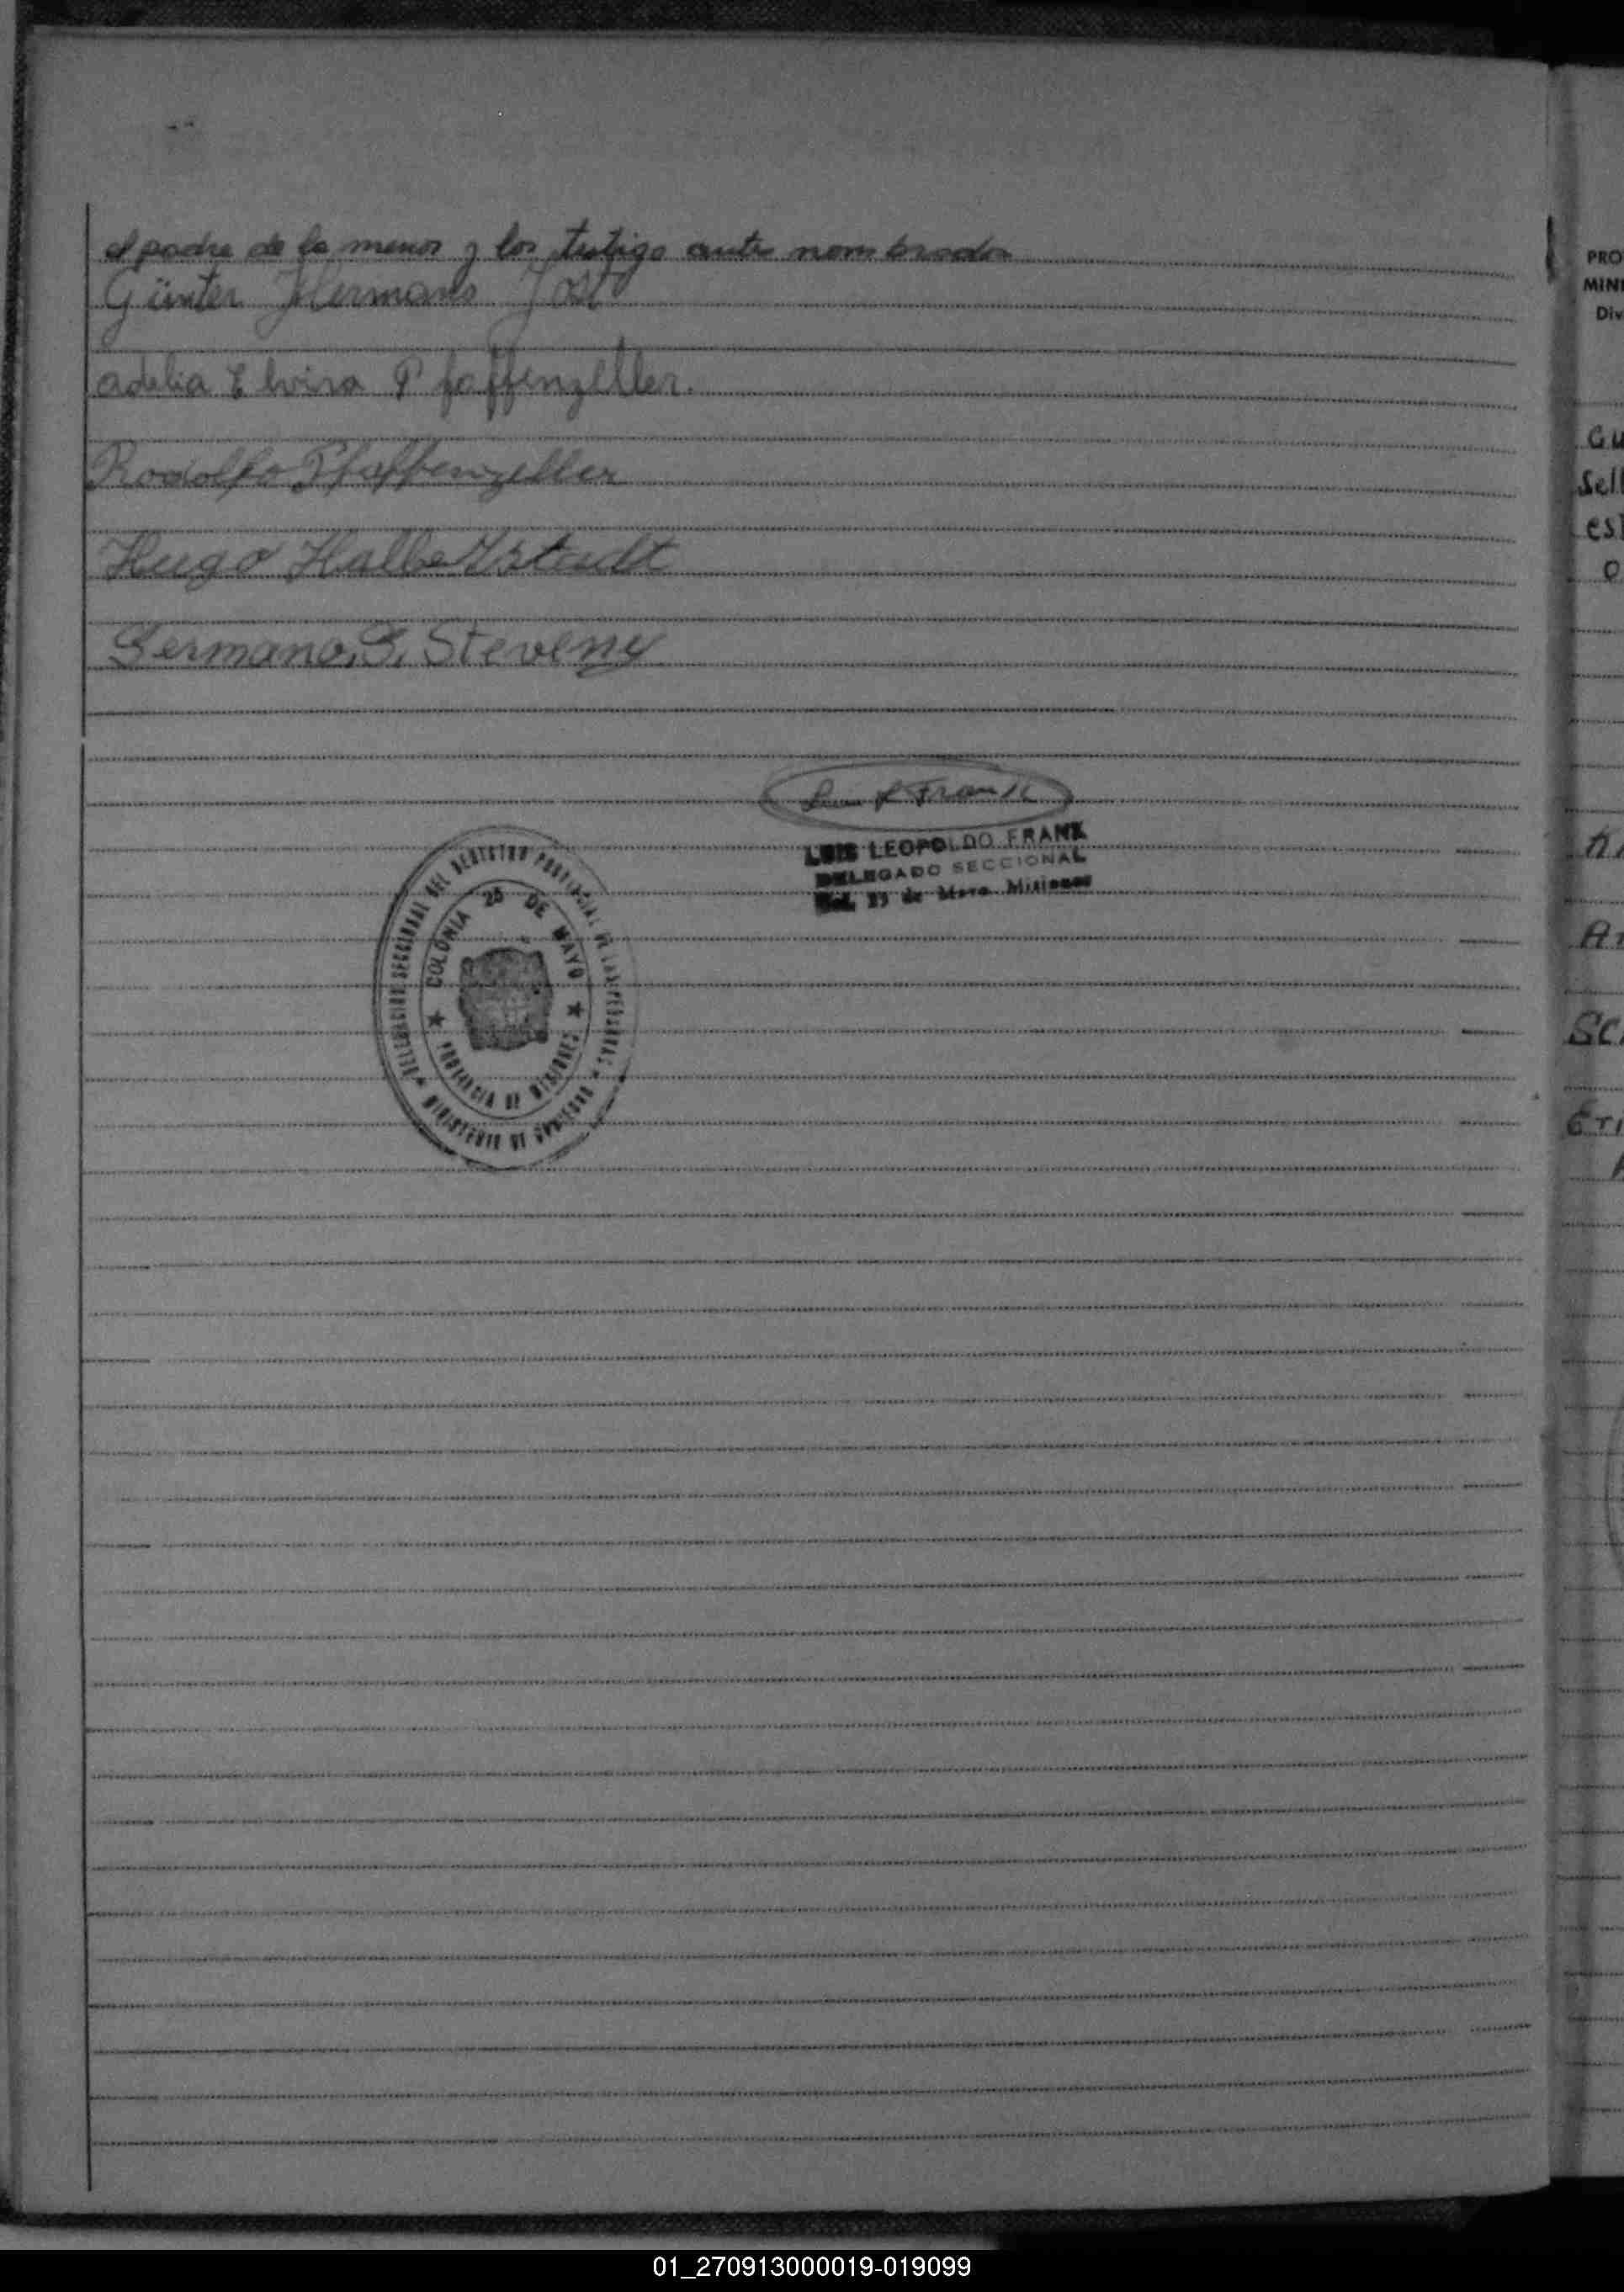 el padre de la menor y los testigo ante nombrados
Günter Hermann Jost
adelia Elvira Pfaffenzeller.
Rodolfo Pfaffenzeller
Hugo Halberstadt
Germano. G. Steveny
Luis L Frank
LUIS LEOPOLDO FRANK
DELEGADO SECCIONAL
Col. 25 de Mayo Misiones
DELEGACION SECCIONAL DEL REGISTRO PROVINCIAL DE LAS PERSONAS
COLONIA 25 DE MAYO
PROVINCIA DE MISIONES
MINISTERIO DE GOBIERNO
PRO
MINI
Div
GU
Sell
es
SC
01_270913000019-019099